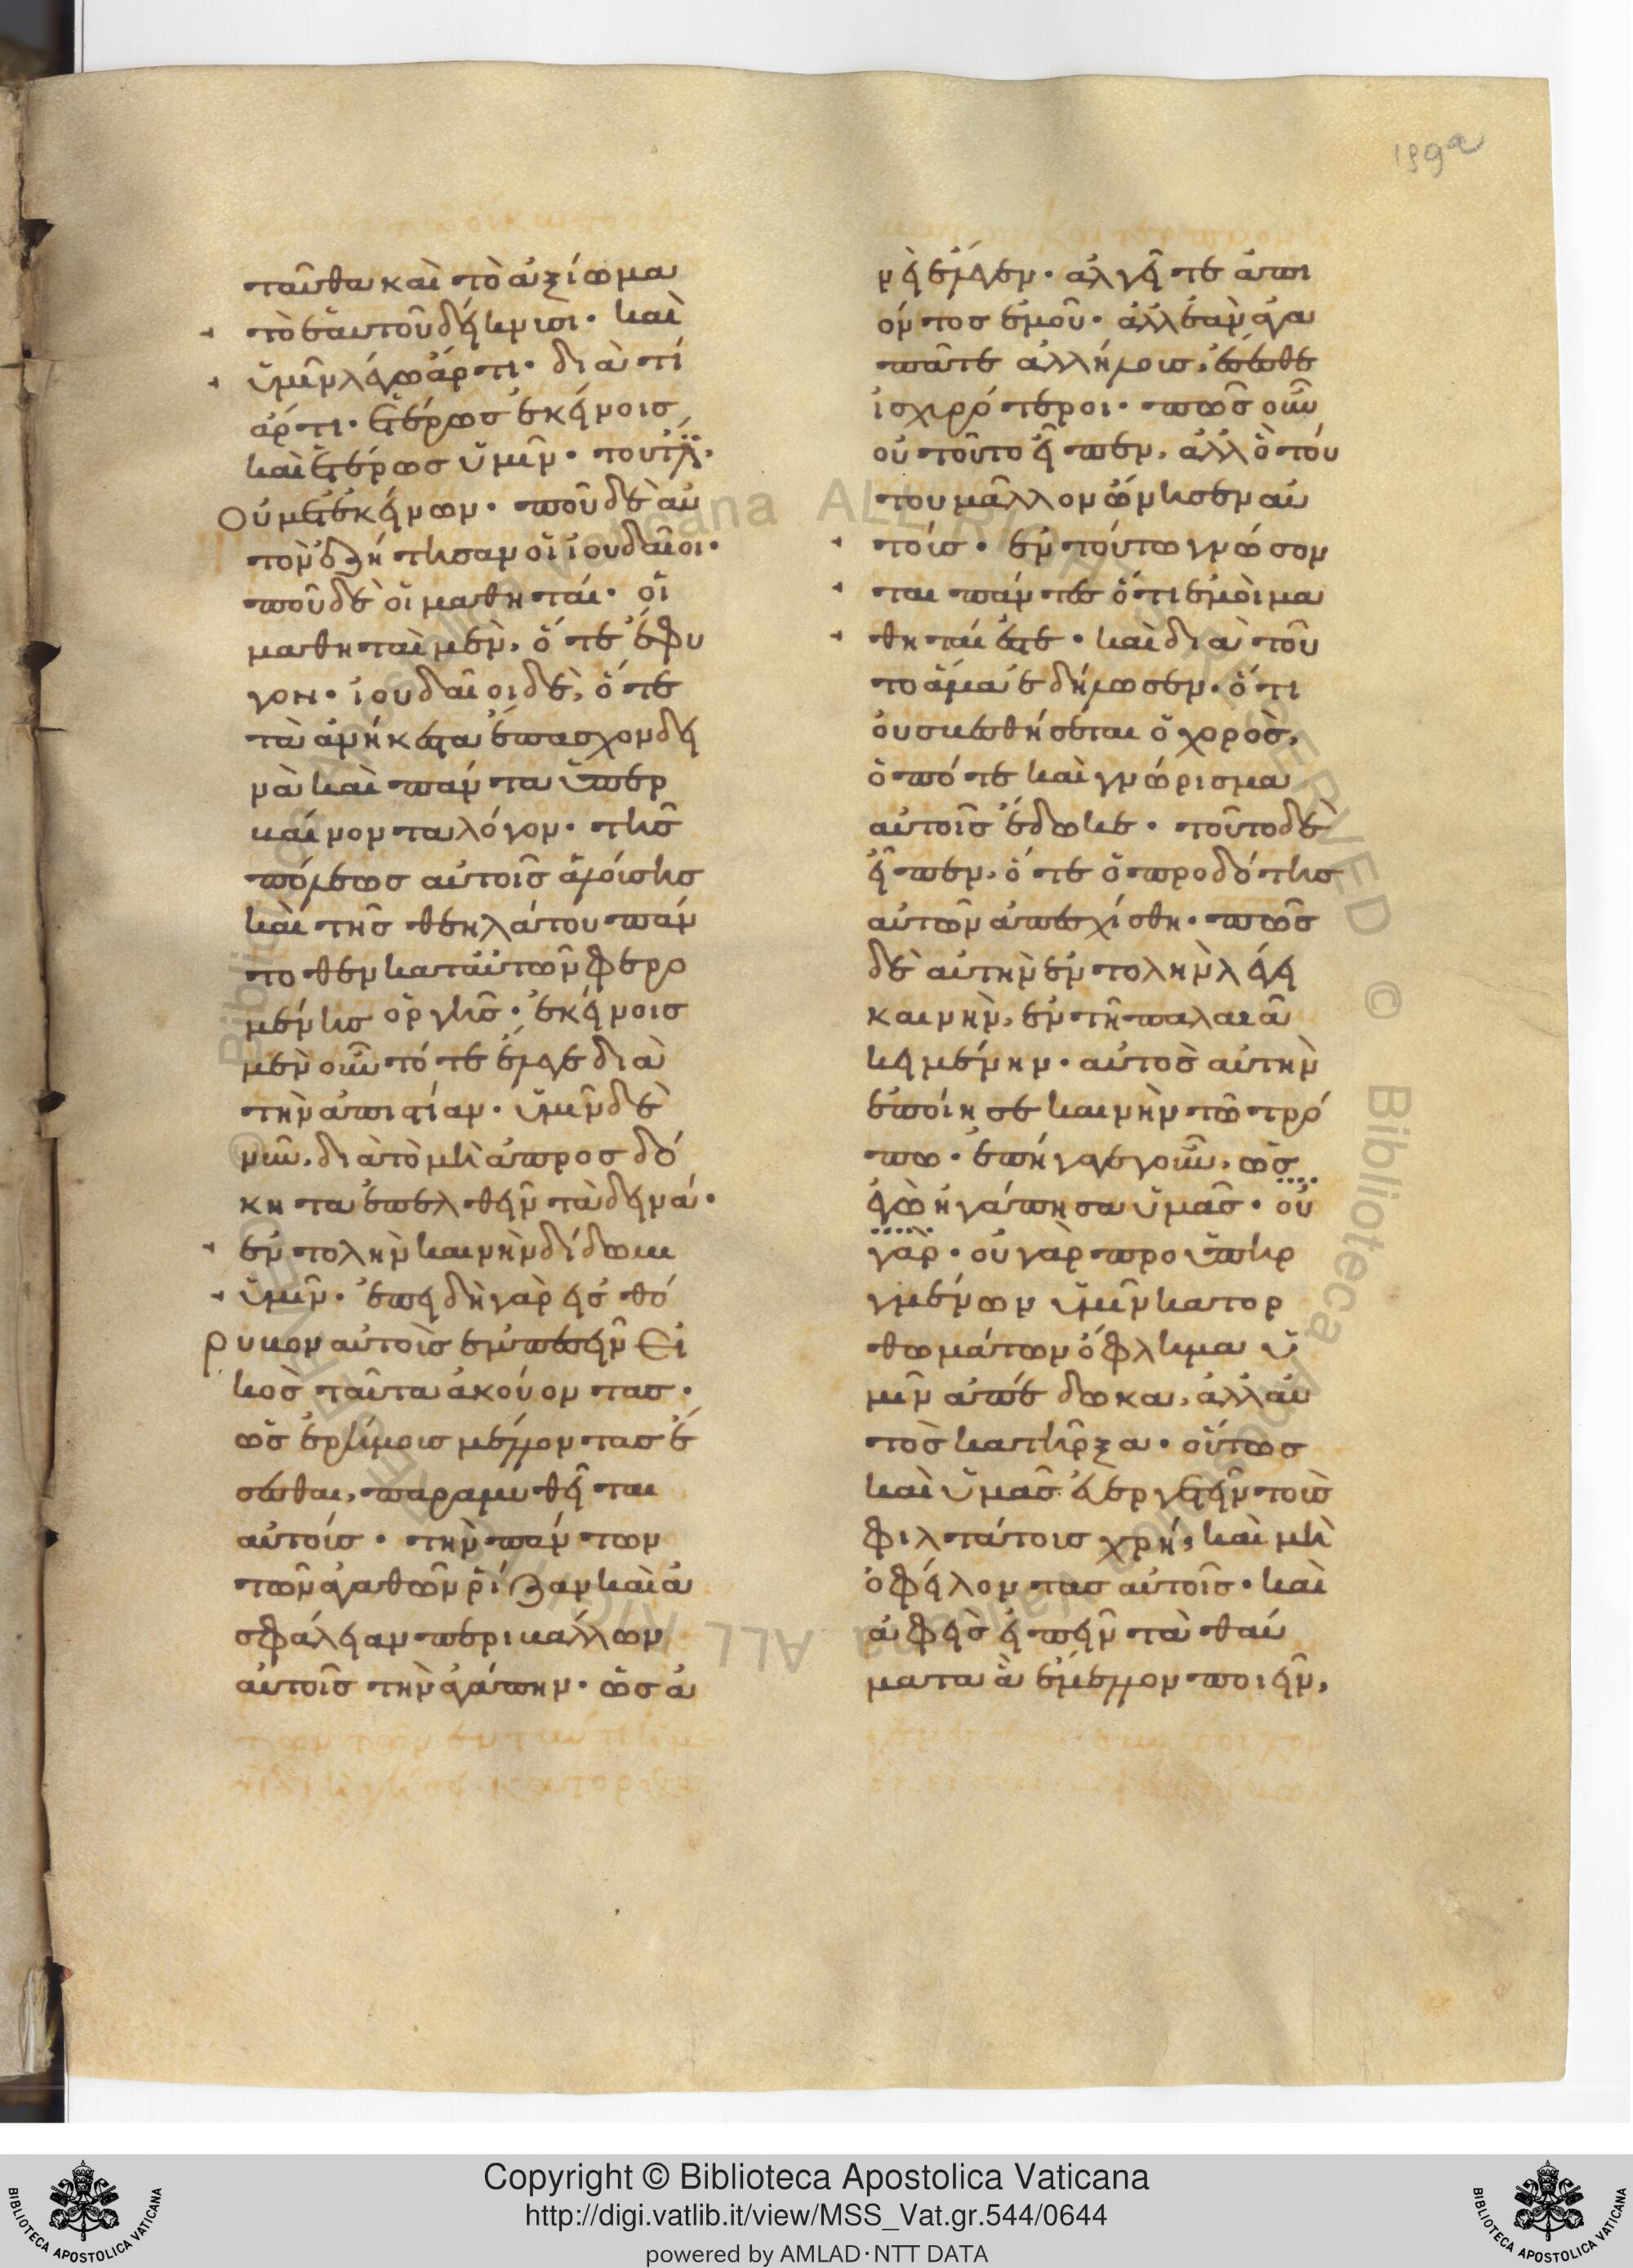 159a
ταῦθα καὶ τὸ ἀξίωμα
τὸ ἑαυτοῦ δείκνυσι· καὶ
ὑμῖν λέγω ἄρτι· διὰ τί
ἄρτι· ἑτέρως ἐκείνοις
καὶ ἑτέρως ὑμῖν· τουτέστι
Οὐ μετ' ἐκείνων· ποῦ δὲ αὐ
τὸν ἐζήτησαν οἱ ἰουδαῖοι·
ποῦ δὲ οἱ μαθηταί· οἱ
μαθηταὶ μὲν, ὅτε ἔφυ
γον· ἰουδαῖοι δὲ, ὅτε
τὰ ἀνήκεστα ἔπασχον δει
νὰ καὶ πάντα ὑπερ
βαίνοντα λόγον· τῆς
πόλεως αὐτοῖς ἁλούσης
καὶ τῆς θεηλάτου πάν
τοθεν κατ' αὐτῶν φερο
μένης ὀργῆς· ἐκείνοις
μὲν οὖν τότε ἔλεγε διὰ
τὴν ἀπιστίαν· ὑμῖν δὲ
νῦν, διὰ τὸ μὴ ἀπροσδό
κητα ἐπελθεῖν τὰ δεινά·
ἐντολὴν καινὴν δίδωμι
ὑμῖν· ἐπειδὴ γὰρ εἰς θό
ρυβον αὐτοὺς ἐμπεσεῖν Εἰ
κὸς ταῦτα ἀκούοντας·
ὡς ἐρήμοις μέλλοντας ἔ
σεσθαι, παραμυθεῖται
αὐτούς· τὴν πάντων
τῶν ἀγαθῶν ῥίζαν καὶ ἀ
σφάλειαν περιβάλλων
αὐτοῖς τὴν ἀγάπην· ὡσα
νεὶ ἔλεγεν· ἀλγεῖτε ἀπι
όντος ἐμοῦ· ἀλλ' ἐὰν ἀγα
πᾶτε ἀλλήλους, ἔσεσθε
ἰσχυρότεροι· πῶς οὖν
οὐ τοῦτο εἶπεν, ἀλλ' ὃ τού
του μᾶλλον ὤνησεν αὐ
τούς· ἐν τούτω γνώσον
ται πάντες ὅτι ἐμοὶ μα
θηταί ἐστε· καὶ διὰ τού
του ἅμα ἐδήλωσεν, ὅτι
οὐ σβεσθήσεται ὁ χορὸς,
ὁπότε καὶ γνώρισμα
αὐτοῖς ἔδωκε· τοῦτο δὲ
εἶπεν, ὅτε ὁ προδότης
αὐτῶν ἀπεσχίσθη· πῶς
δὲ αὐτὴν ἐντολὴν λέγει
καινὴν, ἐν τῆ παλαιᾶ
κειμένην· αὐτὸς αὐτὴν
ἐποίησε καινὴν τῶ τρό
πω· ἐπήγαγε γοῦν, ὡς
ἐγὼ ἠγάπησα ὑμᾶς· οὐ
γὰρ· οὐ γὰρ προϋπηρ
γμένων ὑμῖν κατορ
θωμάτων ὄφλημα ὑ
μῖν ἀπέδωκα, ἀλλ' αὐ
τὸς κατῆρξα· οὕτως
καὶ ὑμᾶς εὐεργετεῖν τοὺς
φιλτάτους χρή, καὶ μὴ
ὀφείλοντας αὐτοῖς· καὶ
ἀφεὶς εἰπεῖν τὰ θαύ
ματα ἃ ἔμελλον ποιεῖν,
Copyright © Biblioteca Apostolica Vaticana
http://digi.vatlib.it/view/MSS_Vat.gr.544/0644
powered by AMLAD·NTT DATA
BIBLIOTECA APOSTOLICA VATICANA
BIBLIOTECA APOSTOLICA VATICANA